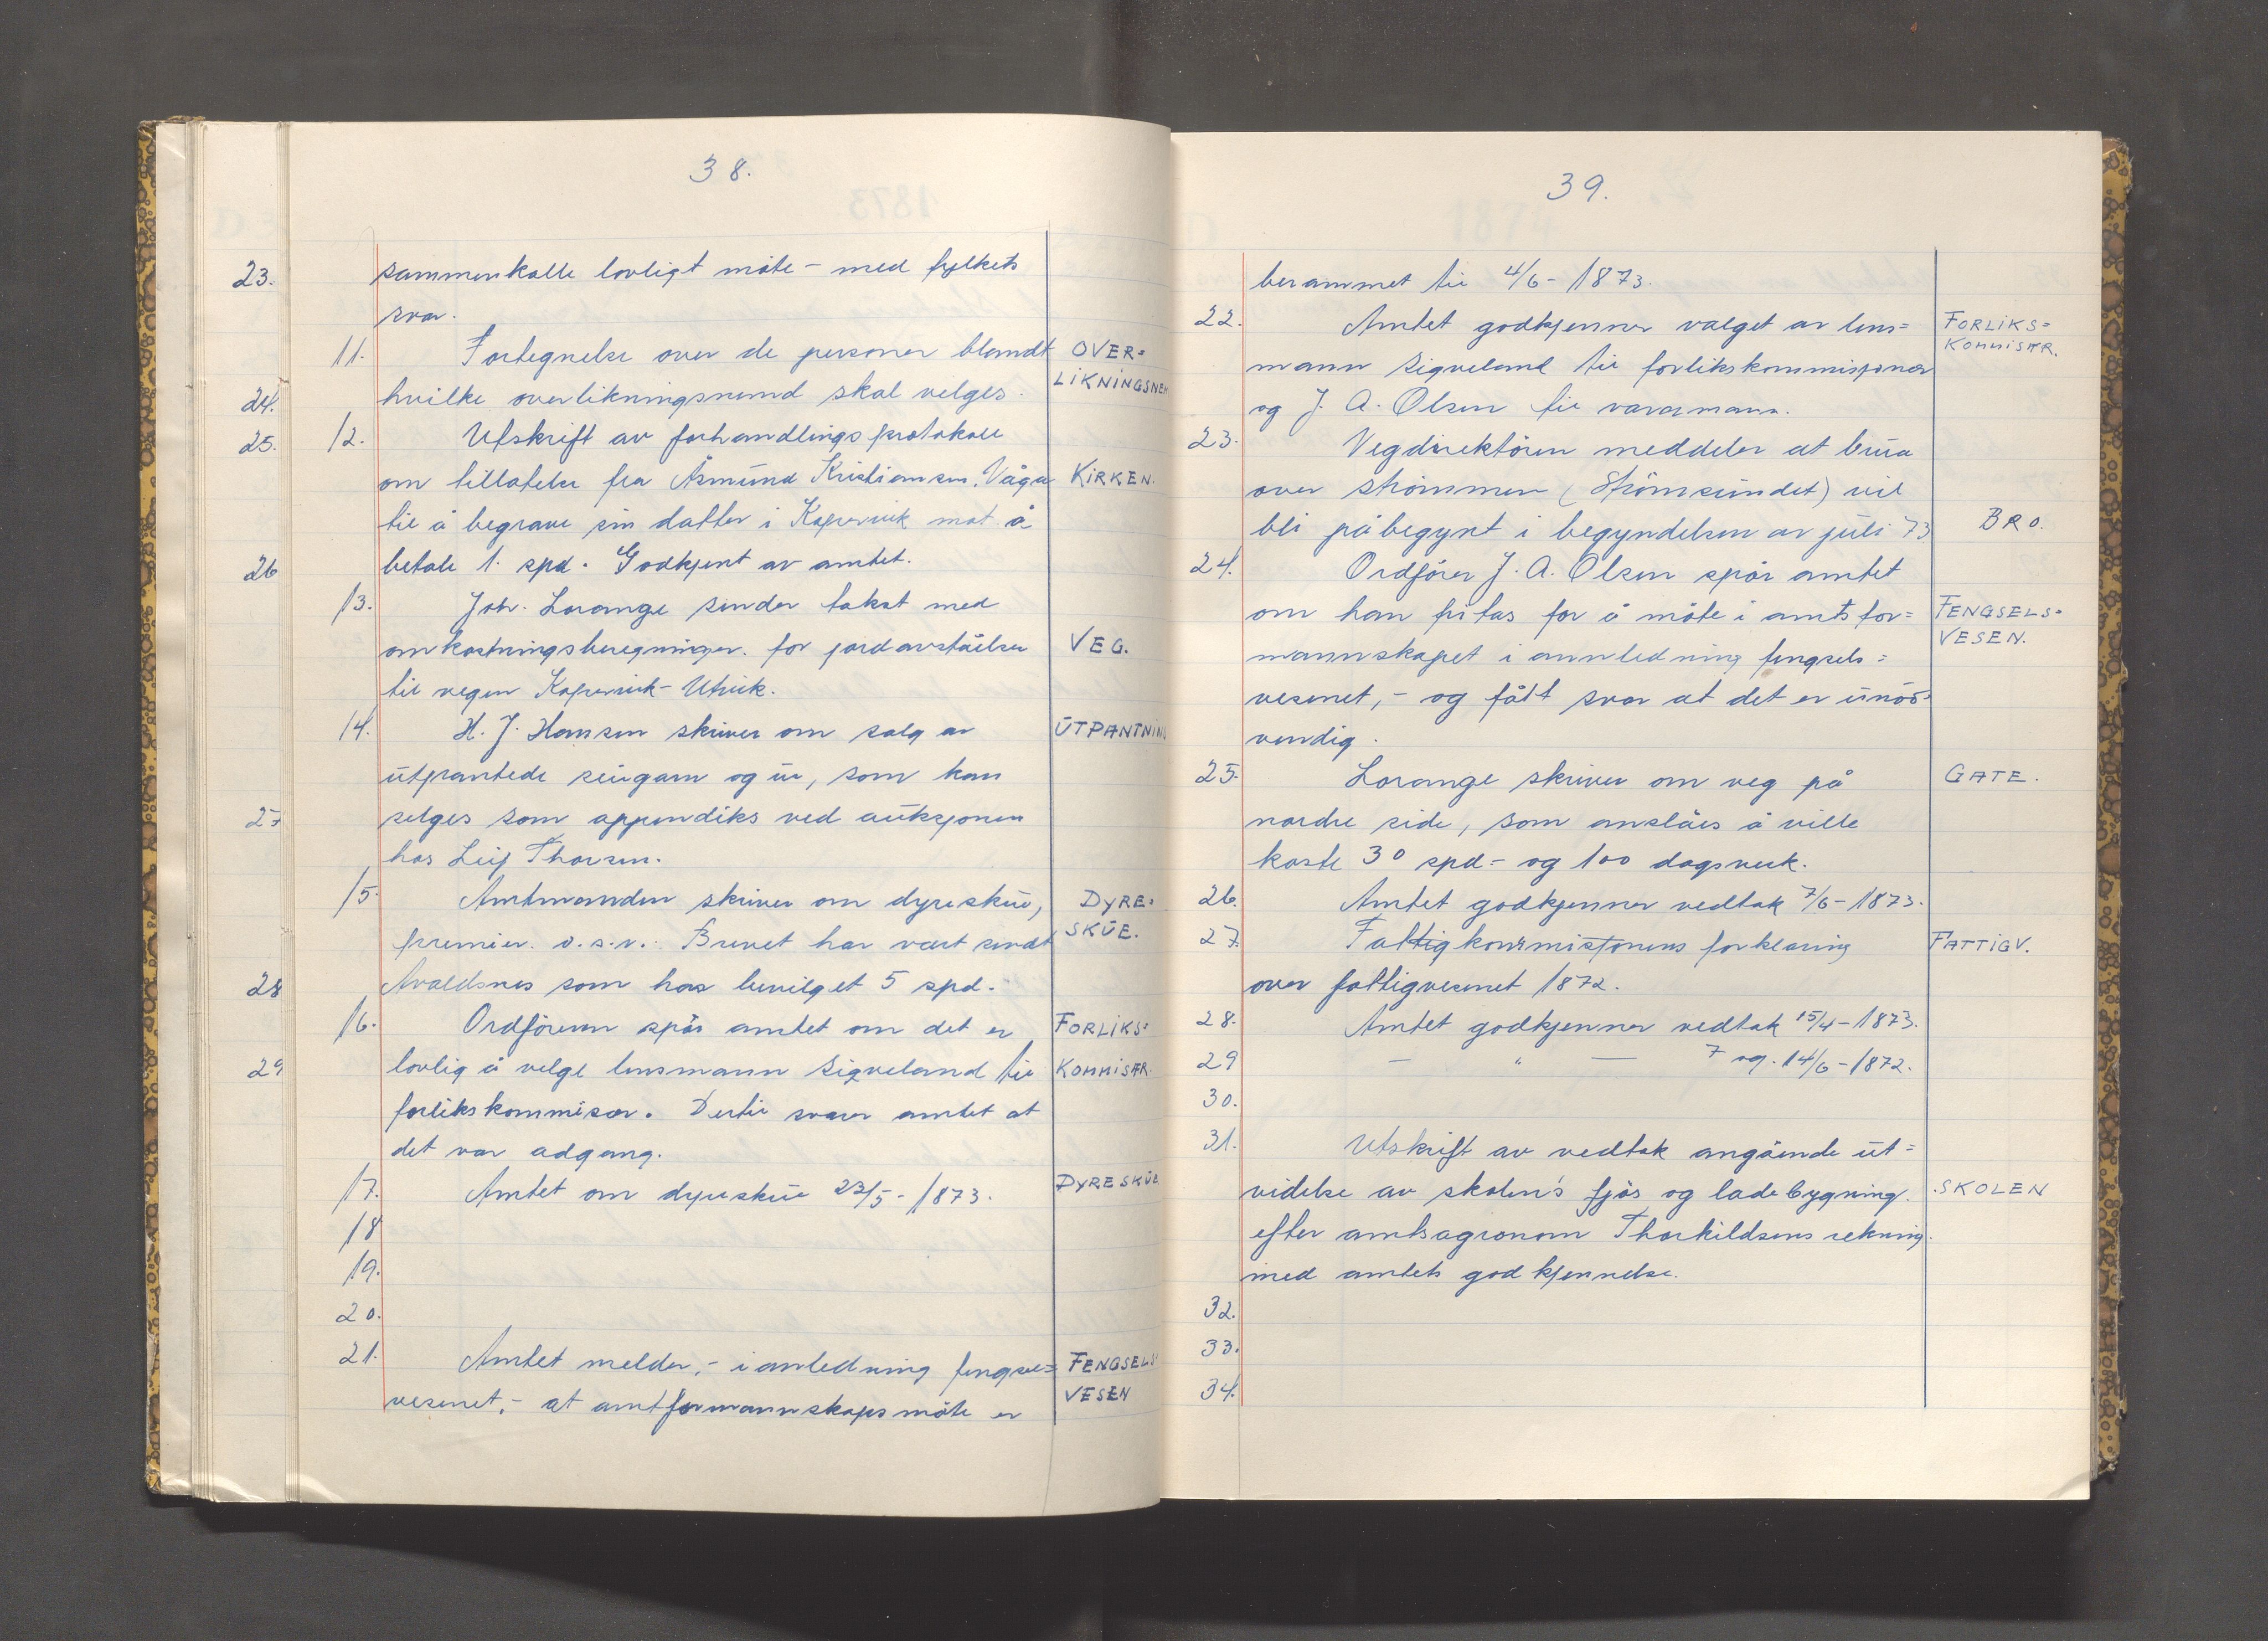 38.
sammenkalle lovligt möte - med fylkets
svar.
11. Fortegnelse over de personer blandt OVER=
hvilke overlikningsnemd skal velges. LIKNINGSNEM
12. Utskrift av forhandlingsprotokoll
om tillatelse fra Åsmund Kristiansen, Våga KIRKEN.
til å begrave sin datter i Kopervik mot å
betale 1. spd. Godkjent av amtet.
13. Joh. Lorange sender takst med
omkostningsberegninger. for jordavståelse VEG.
til vegen Kopervik - Utvik.
14. H. J. Hansen skriver om salg av UTPANTNING
utpantede seigarn og ur, som kan
selges som appendiks ved auksjonen
hos Leif Thorsen.
15. Amtmanden skriver om dyreskue, DYRE=
premier. o.s.v. Brevet har vært sendt SKUE.
Avaldsnes som har bevilget 5 spd.
16. Ordföreren spör amtet om det er FORLIKS=
lovlig å velge lensmann Sigveland til KOMMISÆR.
forlikskommisær. Dertil svarer amtet at
det var adgang.
17. Amtet om dyreskue 23/5 - 1873. DYRESKUE
18
19.
20.
21. Amtet melder, - i anledning fengsel= FENGSELS
vesenet, - at amtformannskapsmöte er VESEN
23.
24.
25.
26
27
28
29
39.
berammet til 4/6 - 1873.
22. Amtet godkjenner valget av lens= FORLIKS=
mann Sigveland til forlikskommisjonær KOMMISÆR.
og J. A. Olsen til varamann.
23. Vegdirektören meddeler at brua
over strömmen (Strömsundet) vil
bli påbegynt i begyndelsen av juli 73 BRO.
24. Ordförer J. A. Olsen spör amtet
om han fritas for å möte i amtsfor= FENGSELS=
mannskapet i annledning fengsels= VESEN.
vesenet, - og fått svar at det er unöd=
vendig.
25. Lorange skriver om veg på GATE.
nordre side, som anslåes å ville
koste 30 spd - og 100 dagsverk.
26. Amtet godkjenner vedtak 7/6 - 1873.
27. Fattigkommisjonens forklaring FATTIGV.
over fattigvesenet 1872.
28. Amtet godkjenner vedtak 15/4 - 1873.
29 — " — 7 og. 14/6 - 1872.
30.
31. Utskrift av vedtak angående ut=
videlse av skolen's fjös og ladebygning. SKOLEN
efter amtsagronom Thorkildsens rekning.
med amtets godkjennelse.
32.
33.
34.